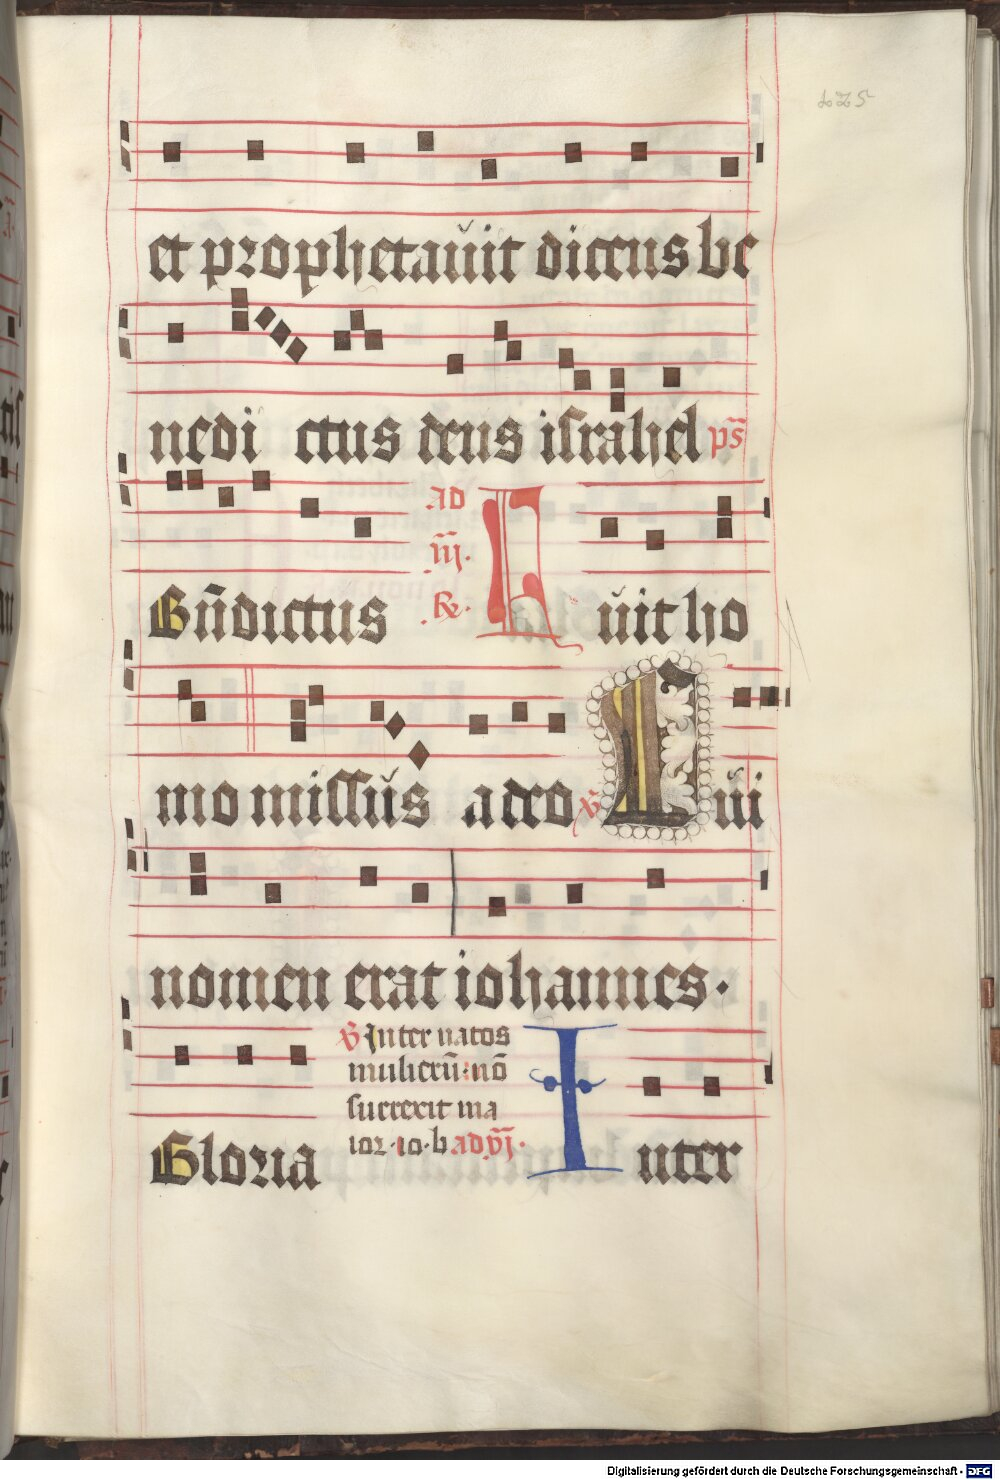 125
et prophetauit dicens be
nedictus deus israhel ps̄
Bn̄dictus ad iij. R. Fuit ho
mo missus a deo V Cui
nomen erat iohannes.
Gloria V Inter natos
mulierū nō
surrexit ma
ior io b ad vj. Inter
Digitalisierung gefördert durch die Deutsche Forschungsgemeinschaft - DFG